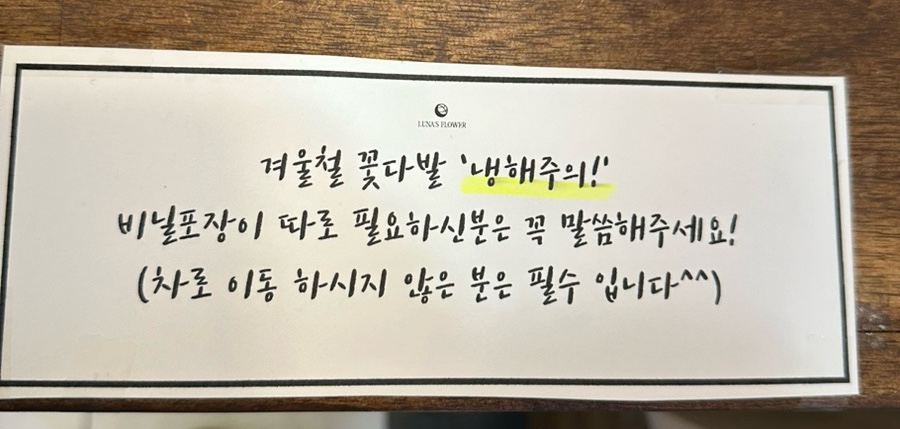 LUNA'S FLOWER
겨울철 꽃다발 '냉해주의!'
비닐포장이 따로 필요하신분은 꼭 말씀해주세요!
(차로 이동 하시지 않은 분은 필수 입니다^^)